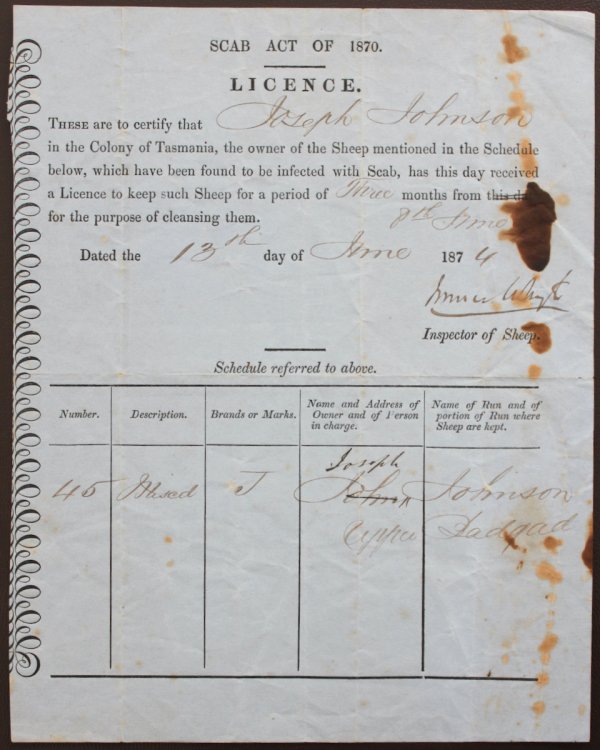 SCAB ACT OF 1870.
LICENCE.
THESE are to certify that Joseph Johnson
in the Colony of Tasmania, the owner of the Sheep mentioned in the Schedule
below, which have been found to be infected with Scab, has this day received
a Licence to keep such Sheep for a period of Three months from this day
8th June
for the purpose of cleansing them.
Dated the 13th day of June 1874
Inspector of Sheep.
Schedule referred to above.
Number. Description. Brands or Marks. Name and Address of Owner and of Person in charge. Name of Run and of portion of Run where Sheep are kept.
Joseph
45 Mixed J John Johnson
Upper